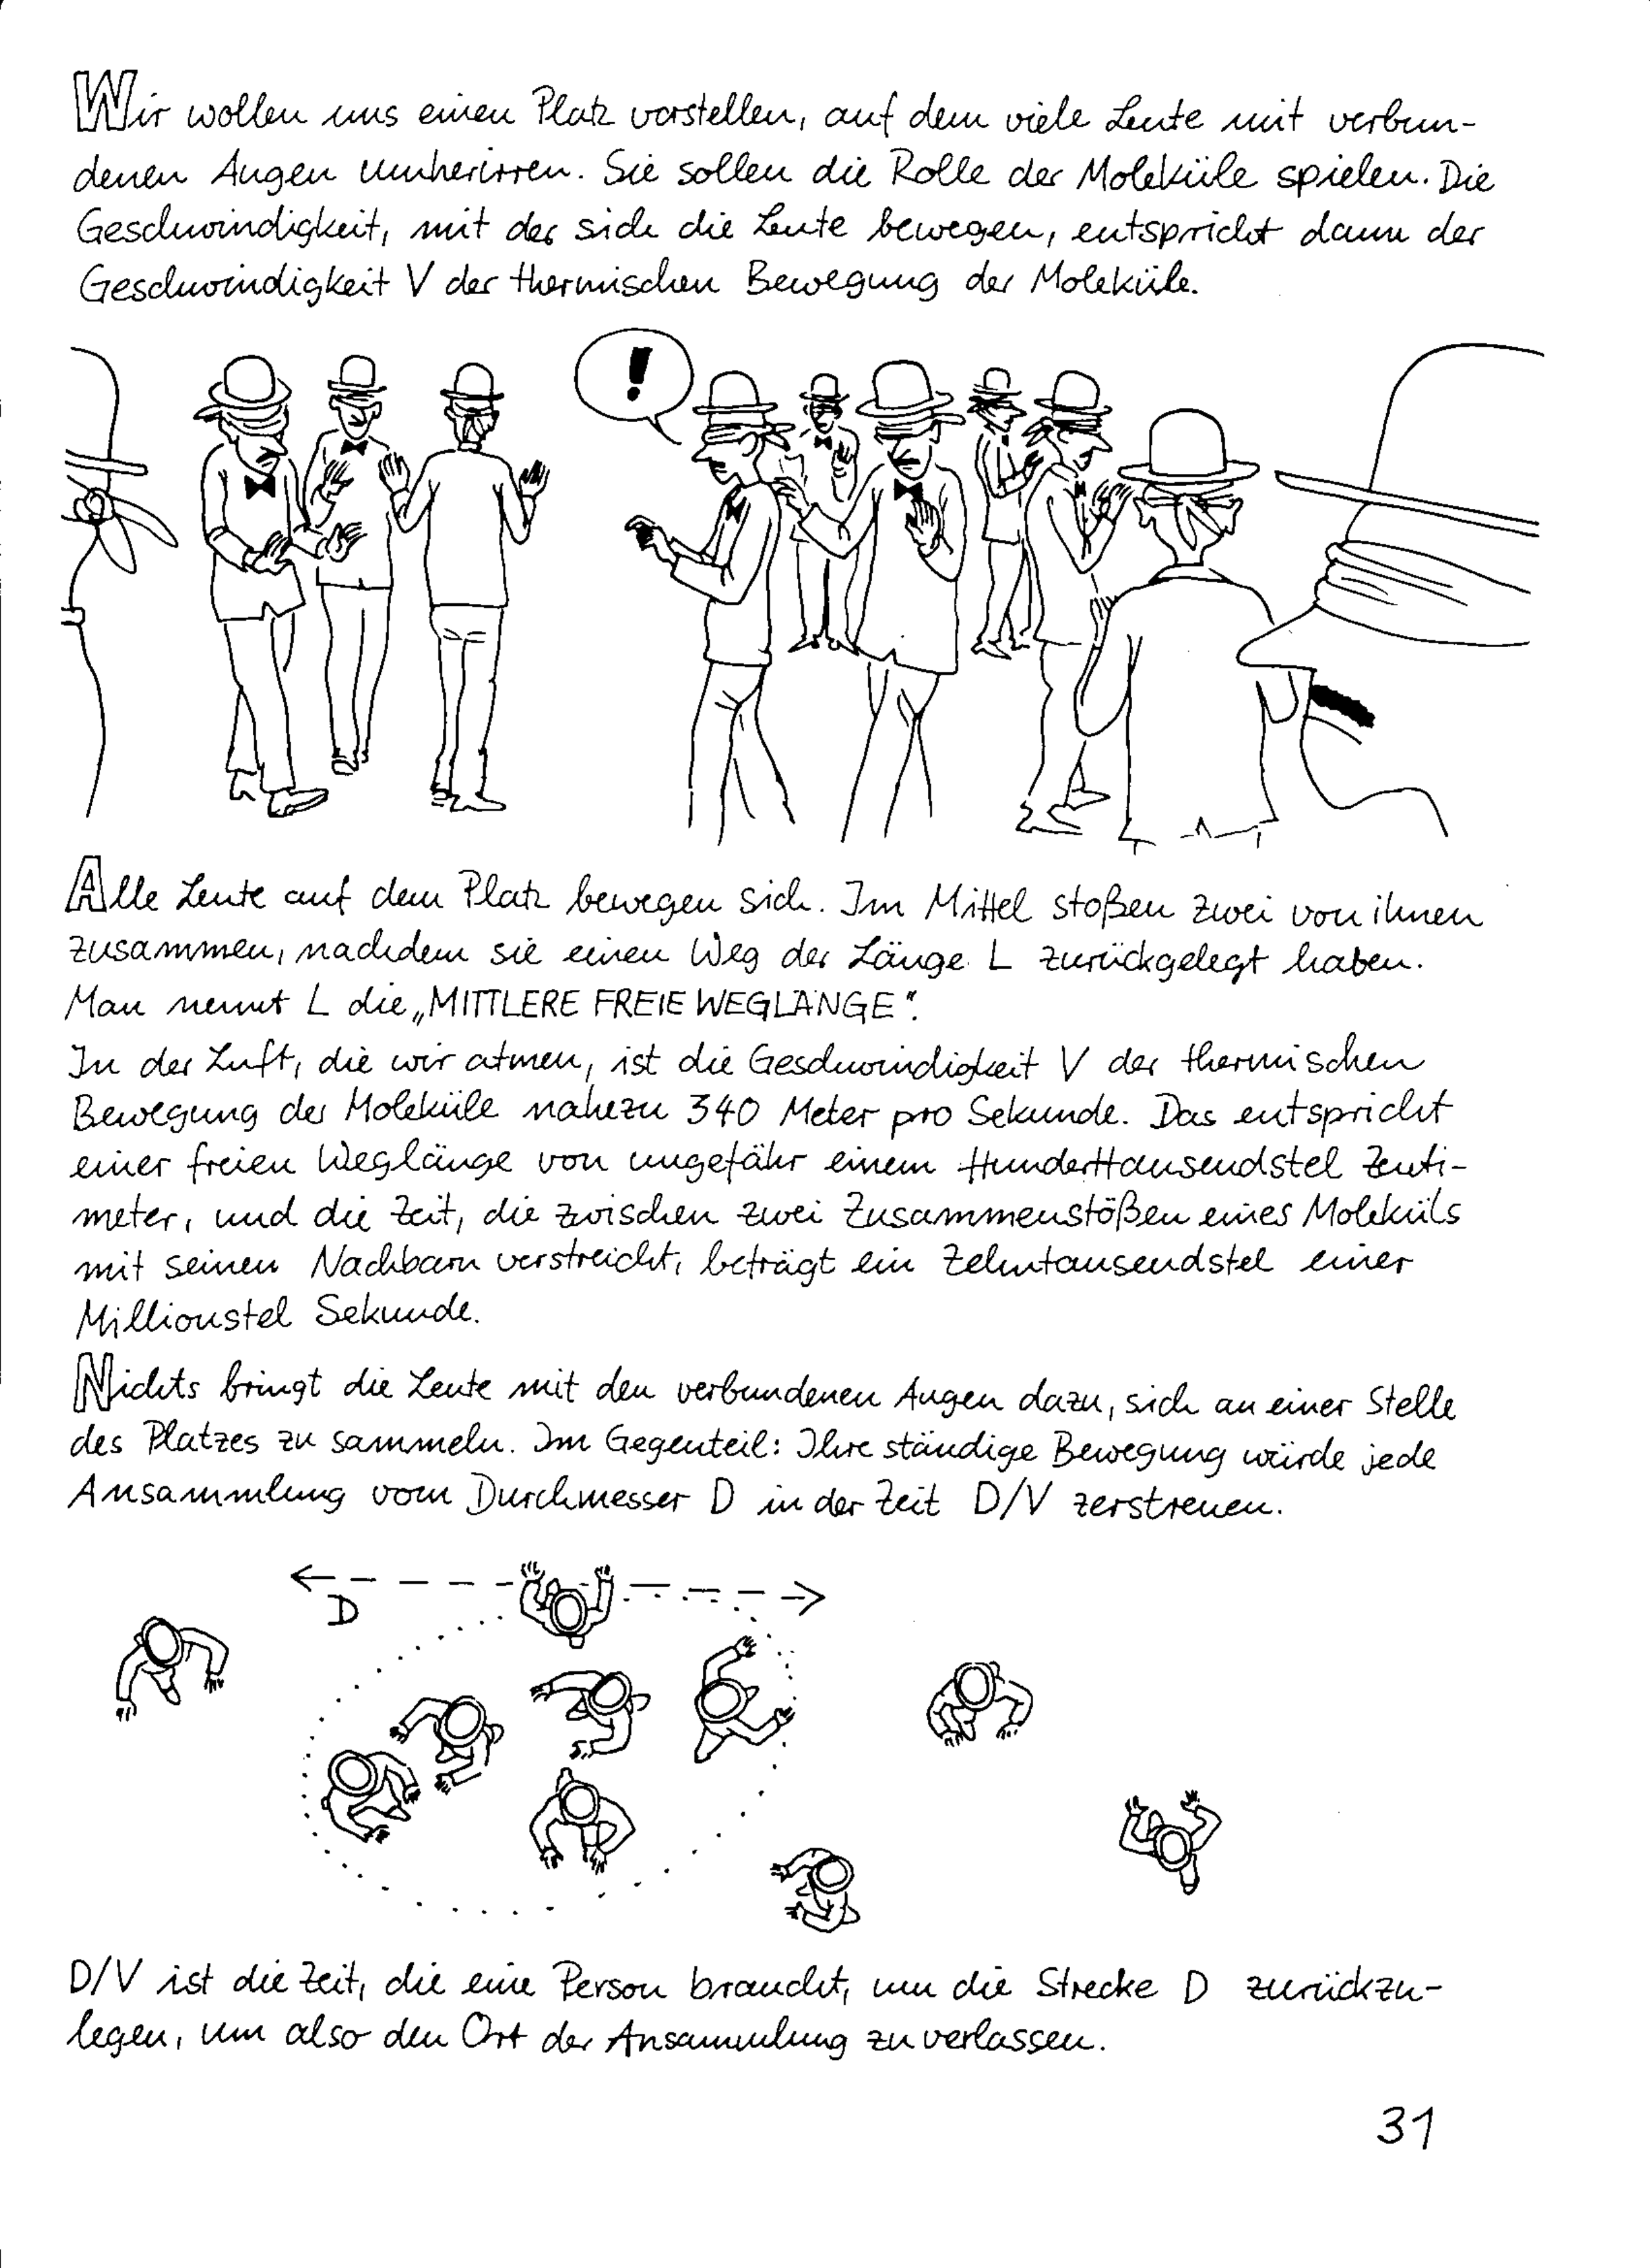 Wir wollen uns einen Platz vorstellen, auf dem viele Leute mit verbun-
denen Augen umherirren. Sie sollen die Rolle der Moleküle spielen. Die
Geschwindigkeit, mit der sich die Leute bewegen, entspricht dann der
Geschwindigkeit V der thermischen Bewegung der Moleküle.
!
Alle Leute auf dem Platz bewegen sich. Im Mittel stoßen zwei von ihnen
zusammen, nachdem sie einen Weg der Länge L zurückgelegt haben.
Man nennt L die „MITTLERE FREIE WEGLÄNGE“.
In der Luft, die wir atmen, ist die Geschwindigkeit V der thermischen
Bewegung der Moleküle nahezu 340 Meter pro Sekunde. Das entspricht
einer freien Weglänge von ungefähr einem Hunderttausendstel Zenti-
meter, und die Zeit, die zwischen zwei Zusammenstößen eines Moleküls
mit seinen Nachbarn verstreicht, beträgt ein Zehntausendstel einer
Millionstel Sekunde.
Nichts bringt die Leute mit den verbundenen Augen dazu, sich an einer Stelle
des Platzes zu sammeln. Im Gegenteil: Ihre ständige Bewegung würde jede
Ansammlung vom Durchmesser D in der Zeit D/V zerstreuen.
D
D/V ist die Zeit, die eine Person braucht, um die Strecke D zurückzu-
legen, um also den Ort der Ansammlung zu verlassen.
31